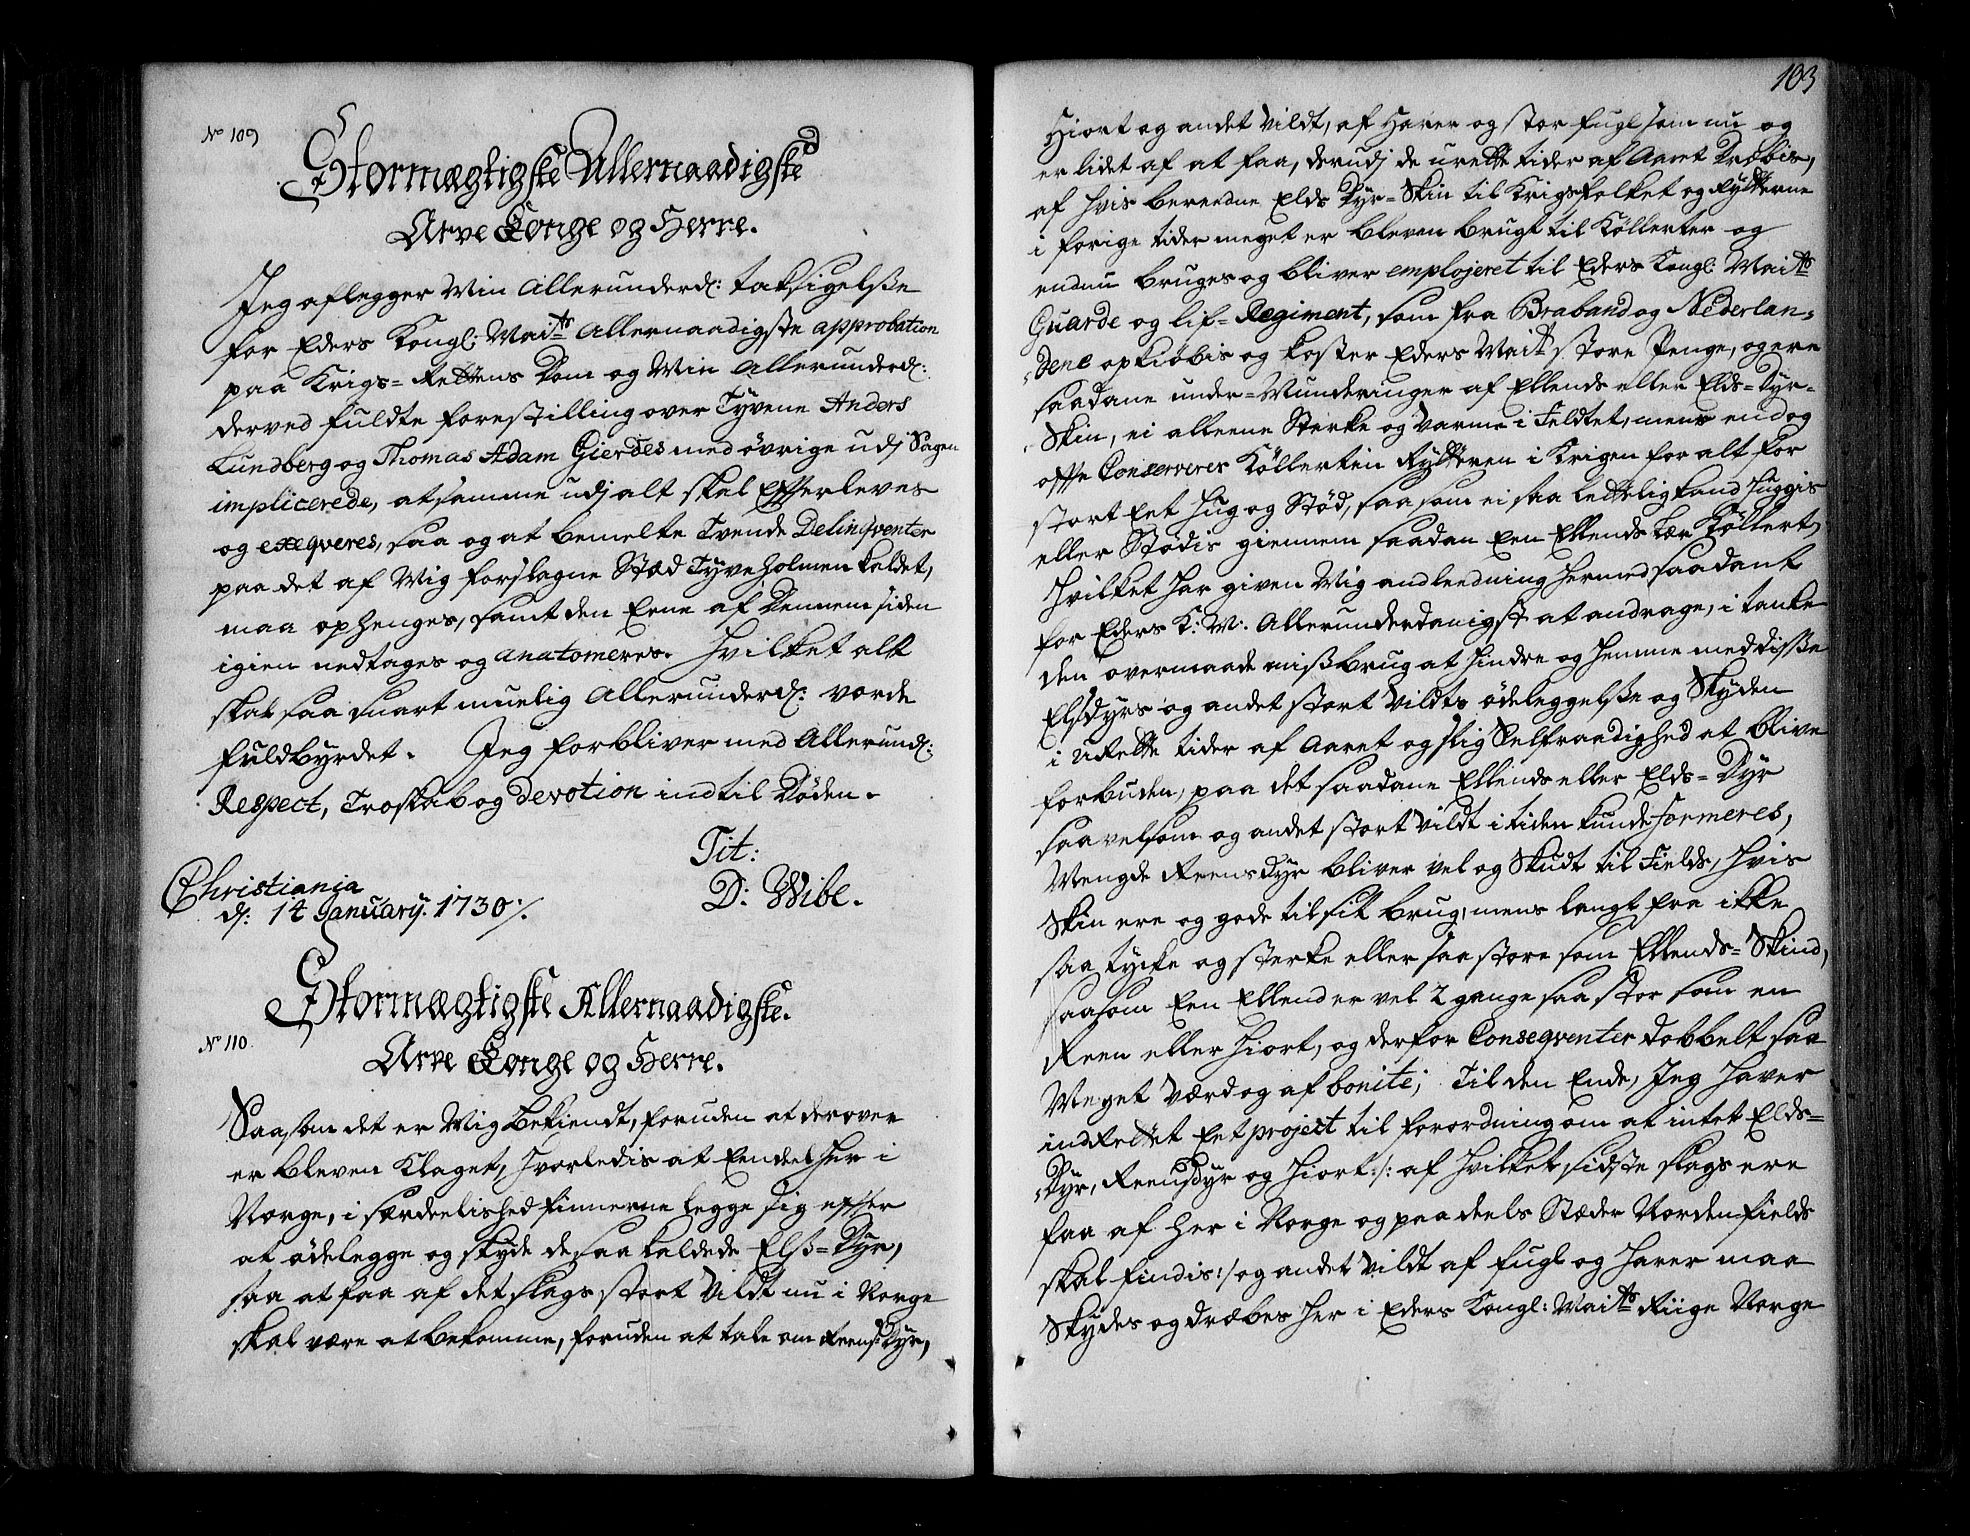 No 109
Stormægtigste Allernaadigste
Arve Konge og Herre.
Jeg aflegger Min Allerunderd: taksigelsse
for Eders Kongl: Maits Allernaadigste approbation
paa Krigs=Rettens Dom og Min Allerunderd:
derved fuldte forestilling over Tyvene Anders
Lundberg og Thomas Adam Gierdes med øvrige udj Sagen
implicerede, at samme udj alt skal Efterleves
og exeqveres, saa og at bemelte Tvende Delinqventer
paa det af Mig forslagne Stæd Tyveholmen kaldet,
maa ophenges, samt den Eene af Dennem siden
igien nedtages og anatomeres. Hvilket alt
skal saa snart muelig Allerunderd: vorde
fuldbyrdet. Jeg forbliver med Allerund:
Respect, Troskab og Devotion indtil Døden.
Tit:
D: Wibe.
Christiania
d: 14 January. 1730 ./.
Stormægtigste Allernaadigste.
No 110.
Arve Konge og Herre.
Saasom det er Mig bekiendt, foruden at derover
er bleven Klaget, hvorledis at Eendeel her i
Norge, i særdeelished finnerne legge sig effter
at ødelegge og skyde de saa kaldede Elss=Dyr,
saa at faa af det slags stort Vildt nu i Norge
skal være at bekomme, foruden at tale om Reens=Dyr,
103
Hiort og andet Vildt, af Harer og stor fugl som nu og
er lidet af at faa, derudj de urette tider af Aaret Dræbis,
af hvis bereedne Elds Dyr=Skin til Krigsfolket og Rytterne
i forige tider meget er bleven brugt til Køllerter og
endnu bruges og bliver emplojeret til Eders Kongl: Maits
Guarde og lif=Regiment, som fra Braband og Nederlan=
=dene opkiøbis og koster Eders Maits store Penge, og ere
saadane under=Munderinger af Ellends eller Elds=Dyr=
Skin, ei alleene Sterke og Varme i Feldtet, mens endog
offte Conserverer Køllerten Rytteren i Krigen for alt for
stort Eet Hug og Stød, saasom ei saa lettelig kand Huggis
eller Stødis giennem saadan Een Ellends Lær Køllert,
Hvilket har given Mig andleedning hermed saadant
for Eders K: M: Allerunderdanigst at andrage, i tanke
den overmaade missbrug at hindre og hemme med disse
Elsdyrs og andet stort Vildts ødeleggelsse og Skyden
i uRette tider af Aaret og slig Selfraadighed at blive
forbuden, paa det saadane Ellends eller Elds=Dyr
saavelsom og andet stort Vildt i tiden kunde formeres,
Mengde ReensDyr bliver vel og Skudt til Fields, hvis
Skin ere og gode til sit brug, mens langt fra ikke
saa tycke og sterke eller saa store som Ellends=Skind,
saasom Een Ellend er vel 2 gange saa stor som en
Reen eller Hiort, og derfor Conseqventer dobbelt saa
Meget Værd og af bonite; Til den Ende, Jeg haver
indRettet Eet project til forordning om at intet Elds=
=Dyr, Reensdyr og Hiort :/: af hvilket sidste slags ere
faa af her i Norge og paa deels Stæder Nordenfields
skal findis :/ og andet Vildt af fugl og Harer maa
Skydes og dræbes her i Eders Kongl: Maits Riige Norge